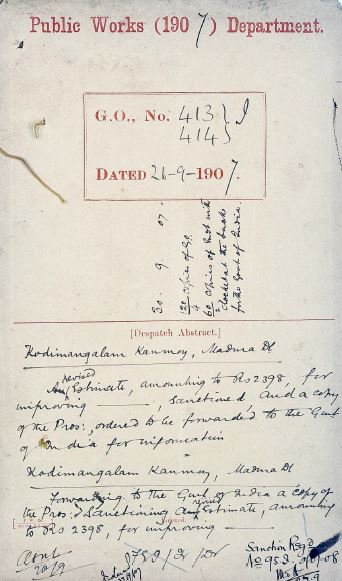 Public Works (1907) Department.
G.O., No. 413 } I
414 }
DATED 26-9-1907.
30. 9. 07.
120 copies of GO
60 copies of Govt with
docket at the back
for the Govt of India.
[Despatch Abstract.]
Kodimangalam Kanmoy, Madura Dt
revised
An Estimate, amounting to Rs 2398, for
improving ———, sanctioned and a copy
of the Pros:, ordered to be forwarded to the Govt
of India for information
Kodimangalam Kanmoy, Madura Dt
Forwarding to the Govt of India a copy of
the Pros: sanctioning an revised Estimate, amounting
to Rs 2398, for improving ———
26/9
Sanction Regd